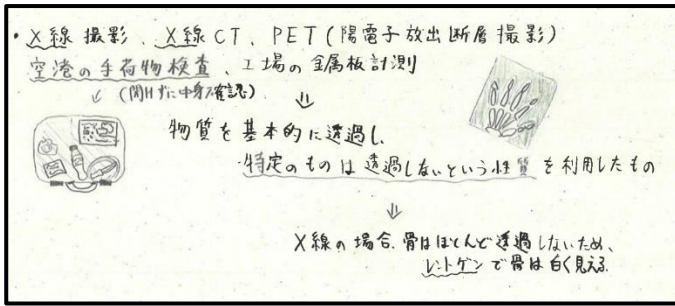 ・X線撮影、X線CT、PET(陽電子放出断層撮影)
空港の手荷物検査、工場の金属板計測
↙(開けずに中身確認) ⇓
物質を基本的に透過し、
特定のものは透過しないという性質を利用したもの
⇓
X線の場合、骨はほとんど透過しないため、
レントゲンで骨は白く見える。